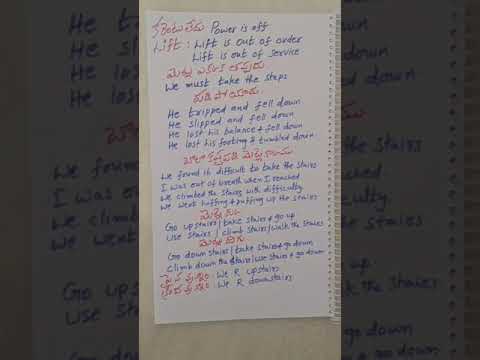 కరెంటు లేదు Power is off
Lift : Lift is out of order
Lift is out of service
మెట్లు ఎక్కక తప్పదు
We must take the steps
పడి పోయాడు
He tripped and fell down
He slipped and fell down
He lost his balance & fell down
He lost his footing & tumbled down
చాలా కష్టపడి మెట్లెక్కాము
We found it difficult to take the stairs
I was out of breath when I reached
We climbed the stairs with difficulty
We went huffing & puffing up the stairs
Go upstairs / take stairs & go up
Use stairs / climb stairs / walk the stairs
మెట్లు దిగు
Go down stairs / take stairs & go down
Climb down the stairs / use stairs & go down
పైన వున్నాం : We R upstairs
క్రింద వున్నాం : We R downstairs